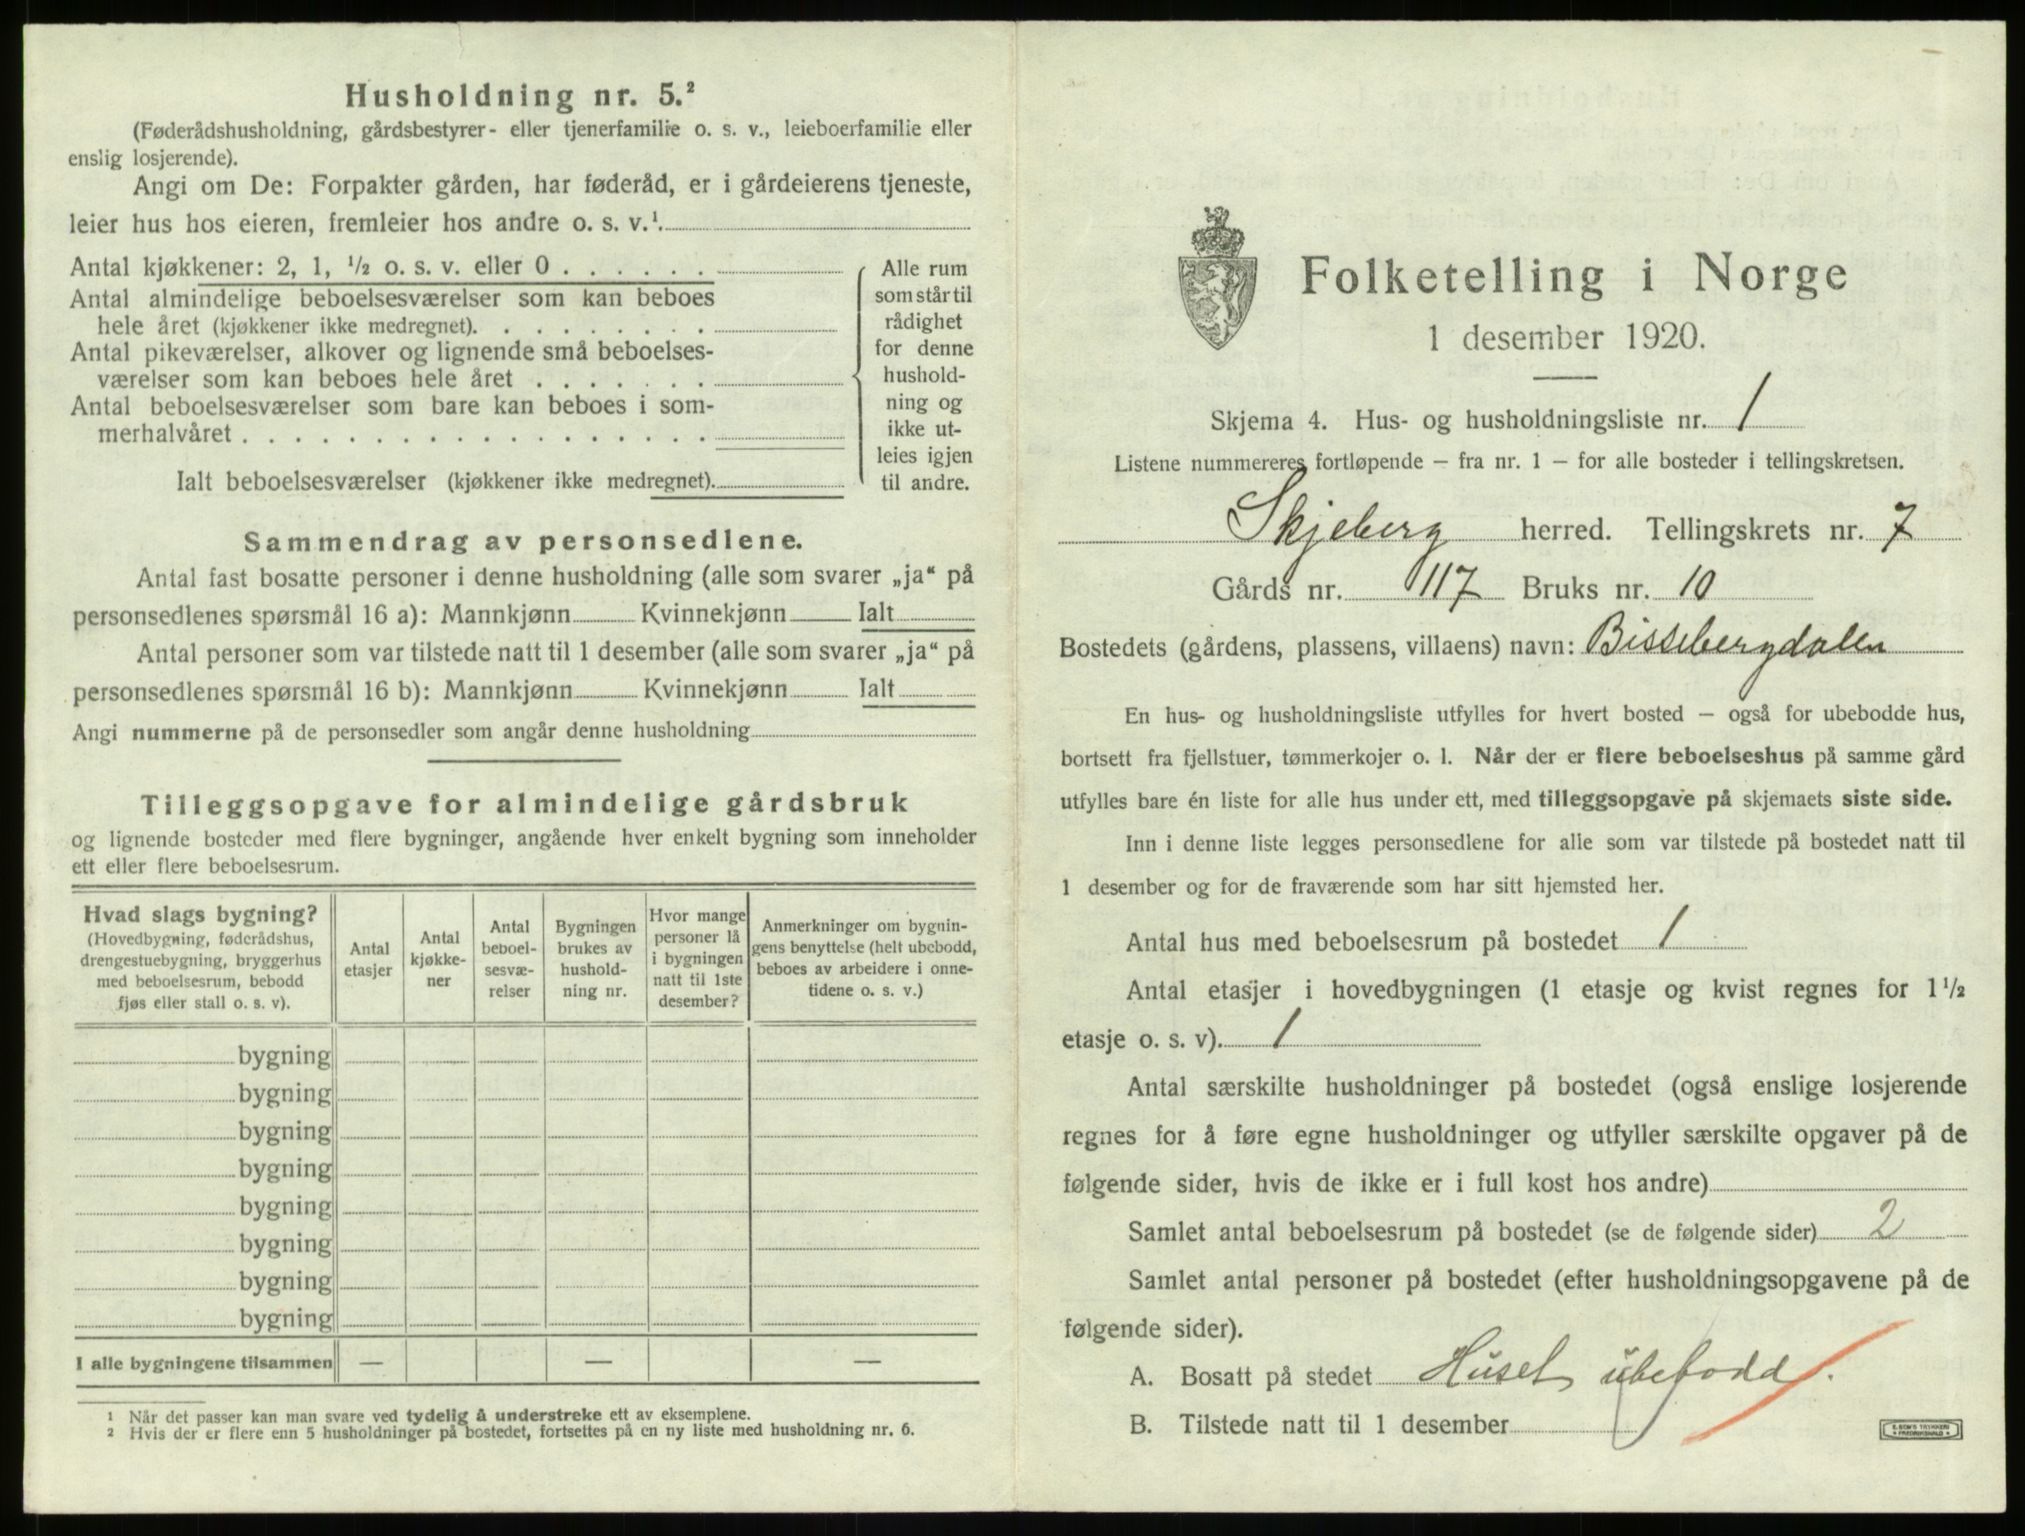 Husholdning nr. 5.²
(Føderådshusholdning, gårdsbestyrer- eller tjenerfamilie o. s. v., leieboerfamilie eller
enslig losjerende).
Angi om De: Forpakter gården, har føderåd, er i gårdeierens tjeneste,
leier hus hos eieren, fremleier hos andre o. s. v.¹.
Antal kjøkkener: 2, 1, ½ o. s. v. eller 0 . . . . . .
Antal almindelige beboelsesværelser som kan beboes
hele året (kjøkkener ikke medregnet). . . . . . . . .
Antal pikeværelser, alkover og lignende små beboelses-
værelser som kan beboes hele året . . . . . . .
Antal beboelsesværelser som bare kan beboes i som-
merhalvåret . . . . . . . . . . . . . . . . . .
Ialt beboelsesværelser (kjøkkener ikke medregnet).
Alle rum
som står til
rådighet
for denne
hushold-
ning og
ikke ut-
leies igjen
til andre.
Sammendrag av personsedlene.
Antal fast bosatte personer i denne husholdning (alle som svarer „ja“ på
personsedlenes spørsmål 16 a): Mannkjønn Kvinnekjønn Ialt
Antal personer som var tilstede natt til 1 desember (alle som svarer „ja“ på
personsedlenes spørsmål 16 b): Mannkjønn Kvinnekjønn Ialt
Angi nummerne på de personsedler som angår denne husholdning
Tilleggsopgave for almindelige gårdsbruk
og lignende bosteder med flere bygninger, angående hver enkelt bygning som inneholder
ett eller flere beboelsesrum.
Hvad slags bygning?
(Hovedbygning, føderådshus,
drengestuebygning, bryggerhus
med beboelsesrum, bebodd
fjøs eller stall o. s. v).
Antal
etasjer
Antal
kjøkke-
ner
Antal
beboel-
sesvæ-
relser
Bygningen
brukes av
hushold-
ning nr.
Hvor mange
personer lå
i bygningen
natt til 1ste
desember?
Anmerkninger om bygnin-
gens benyttelse (helt ubebodd,
beboes av arbeidere i onne-
tidene o. s. v.)
bygning
bygning
bygning
bygning
bygning
bygning
bygning
bygning
I alle bygningene tilsammen — — —
¹ Når det passer kan man svare ved tydelig å understreke ett av eksemplene.
² Hvis der er flere enn 5 husholdninger på bostedet, fortsettes på en ny liste med husholdning nr. 6.
Folketelling i Norge
1 desember 1920.
Skjema 4. Hus- og husholdningsliste nr. 1
Listene nummereres fortløpende – fra nr. 1 – for alle bosteder i tellingskretsen.
Skjeberg herred. Tellingskrets nr. 7
Gårds nr. 117 Bruks nr. 10
Bostedets (gårdens, plassens, villaens) navn: Bissebergdalen
En hus- og husholdningsliste utfylles for hvert bosted – også for ubebodde hus,
bortsett fra fjellstuer, tømmerkojer o. l. Når der er flere beboelseshus på samme gård
utfylles bare én liste for alle hus under ett, med tilleggsopgave på skjemaets siste side.
Inn i denne liste legges personsedlene for alle som var tilstede på bostedet natt til
1 desember og for de fraværende som har sitt hjemsted her.
Antal hus med beboelsesrum på bostedet 1
Antal etasjer i hovedbygningen (1 etasje og kvist regnes for 1½
etasje o. s. v). 1
Antal særskilte husholdninger på bostedet (også enslige losjerende
regnes for å føre egne husholdninger og utfyller særskilte opgaver på de
følgende sider, hvis de ikke er i full kost hos andre)
Samlet antal beboelsesrum på bostedet (se de følgende sider) 2
Samlet antal personer på bostedet (efter husholdningsopgavene på de
følgende sider).
A. Bosatt på stedet Huset ubebodd.
B. Tilstede natt til 1 desember